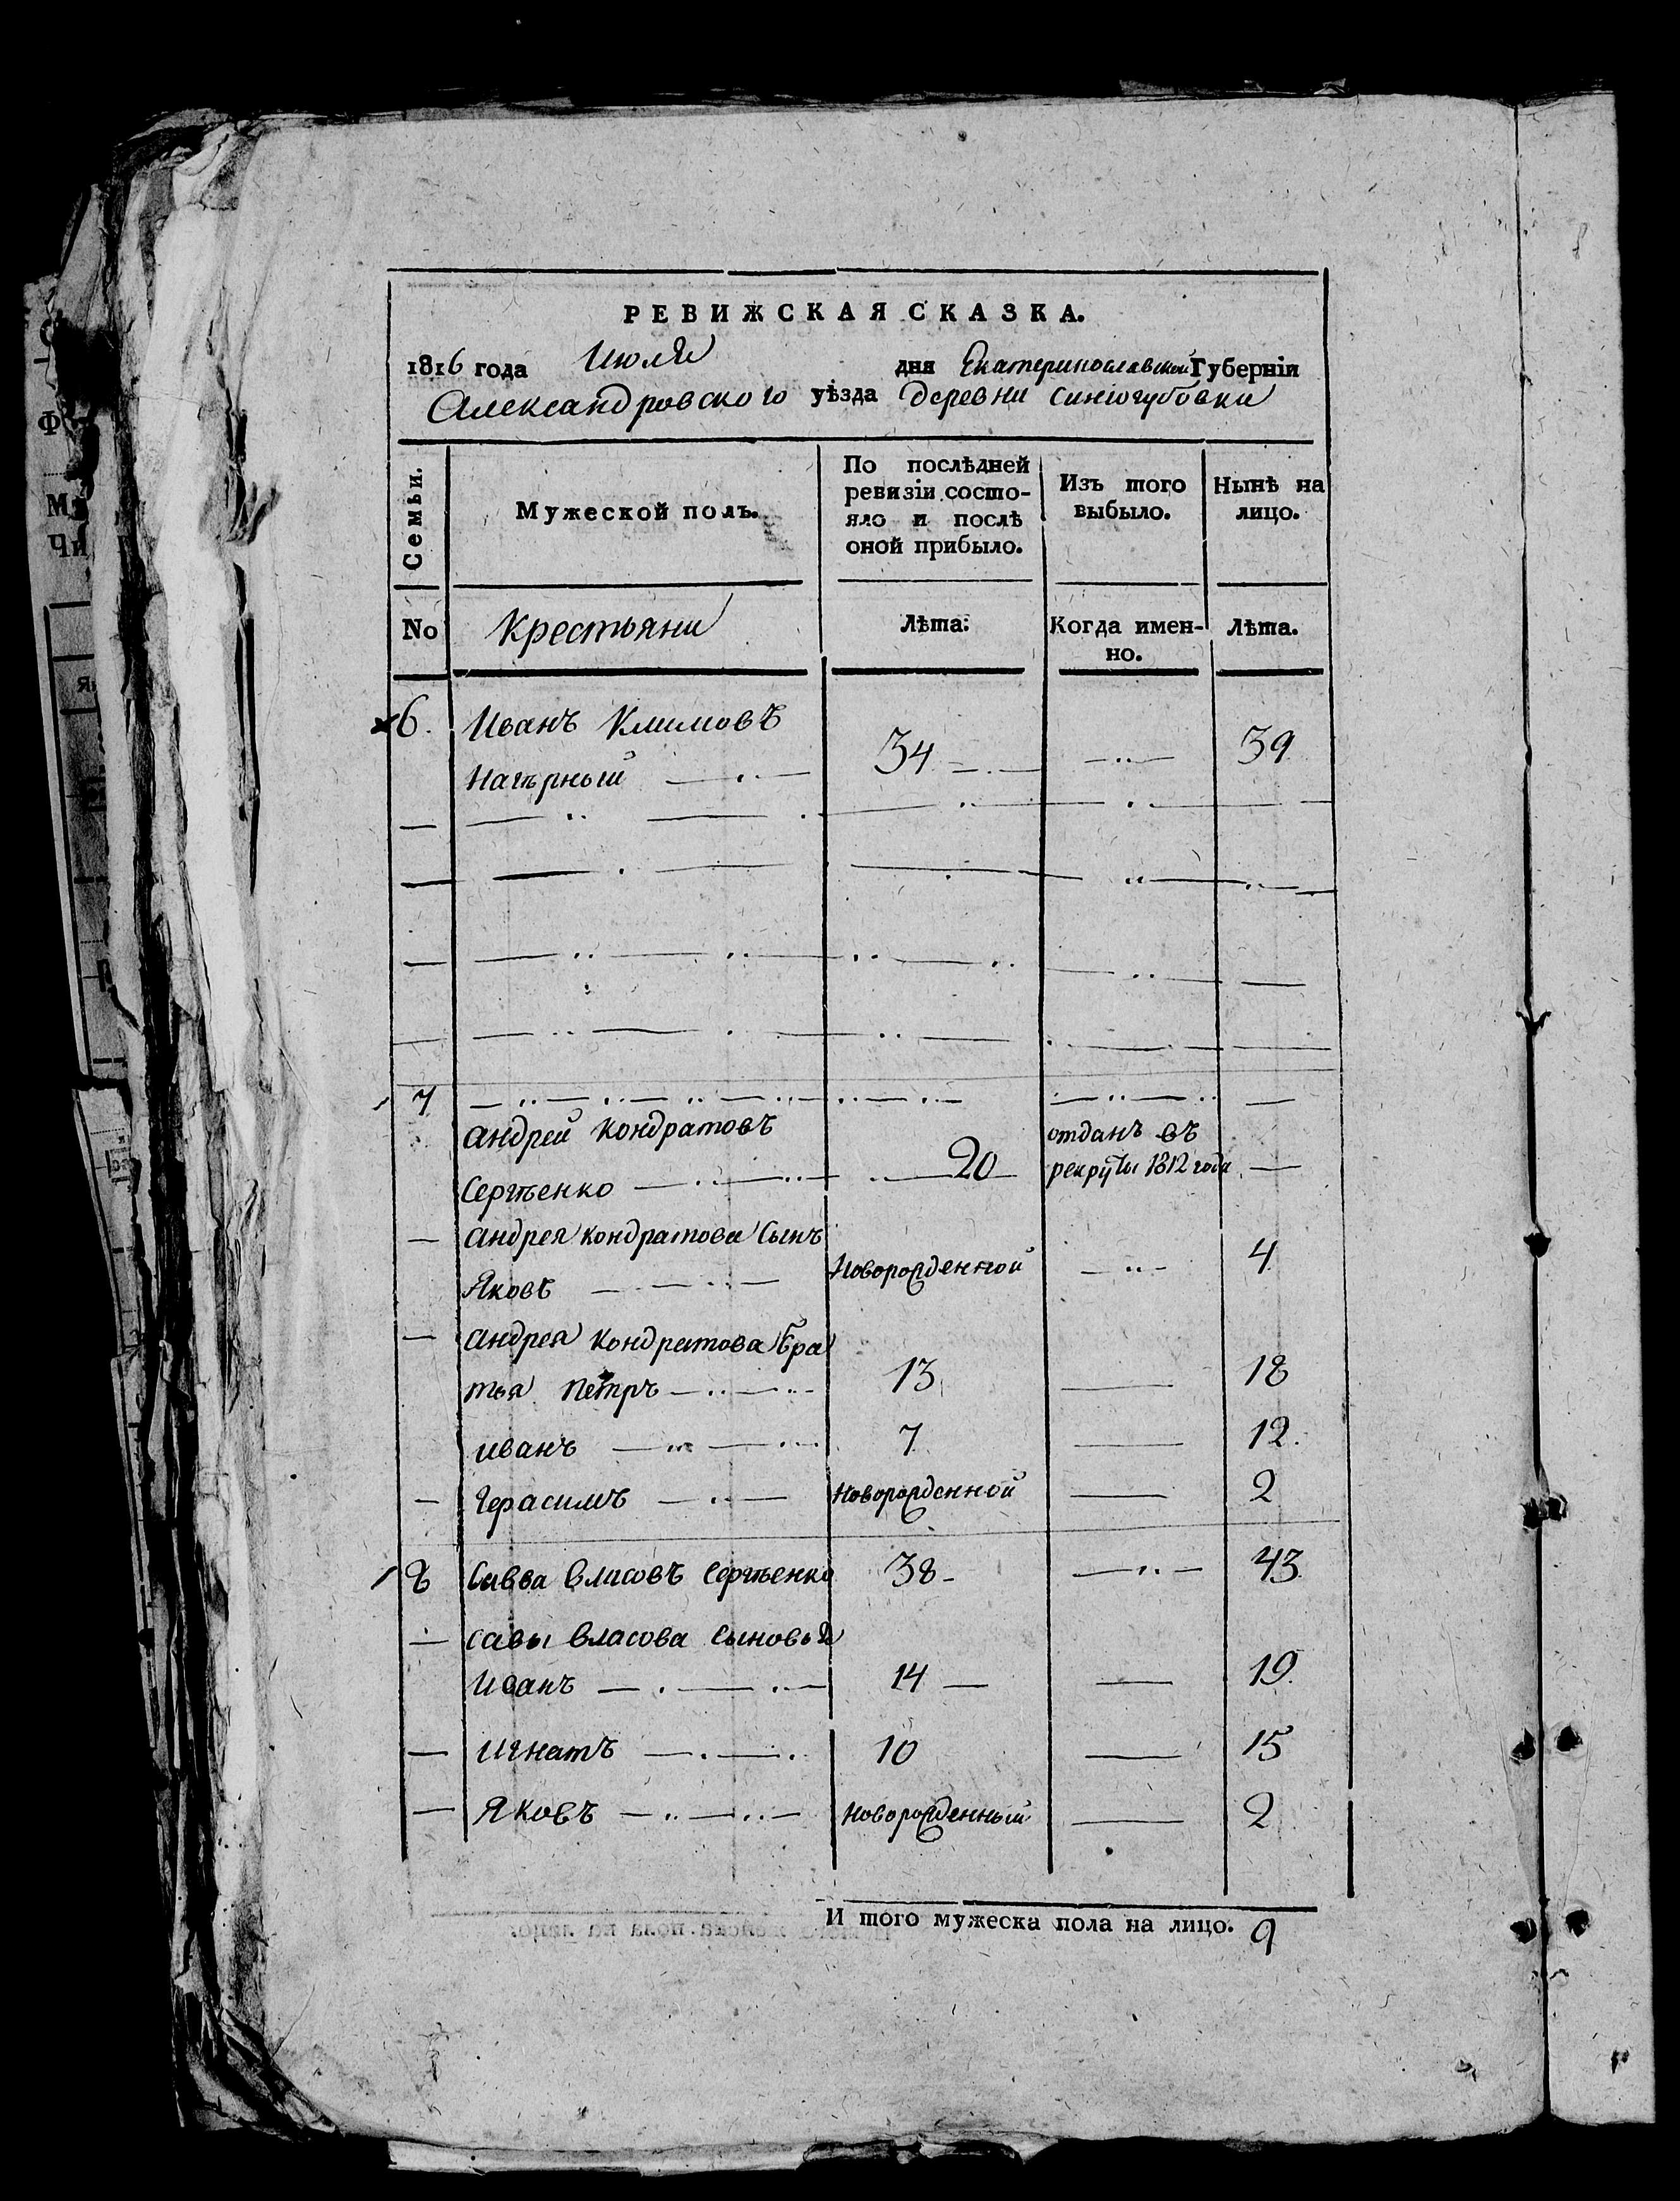 РЕВИЖСКАЯ СКАЗКА.
1816 года Июля дня Екатеринославской Губерніи
Александровского уѣзда деревни Сингогубовки
Семьи.
Мужеской полъ.
По послѣдней ревизіи состо-яло и послѣ оной прибыло.
Изъ того выбыло.
Нынѣ на лицо.
No Крестьяни Лѣта: Когда имен-но. Лѣта.
6. Иванъ Климовъ
Нагѣрный 34 39
7
Андрей Кондратовъ отданъ въ
Сергѣенко 20 рекруты 1812 года
Андрея Кондратова Сынъ
Яковъ Новорожденной 4
Андрея Кондратова бра
тья Петръ 13 18
иванъ 7 12.
Герасимъ Новорожденной 2
8 Савва Власовъ Сергѣенко 38 43
савы Власова Сыновья
Иванъ 14 19
Игнатъ 10 15
Яковъ новорожденный 2
И того мужеска пола на лицо. 9